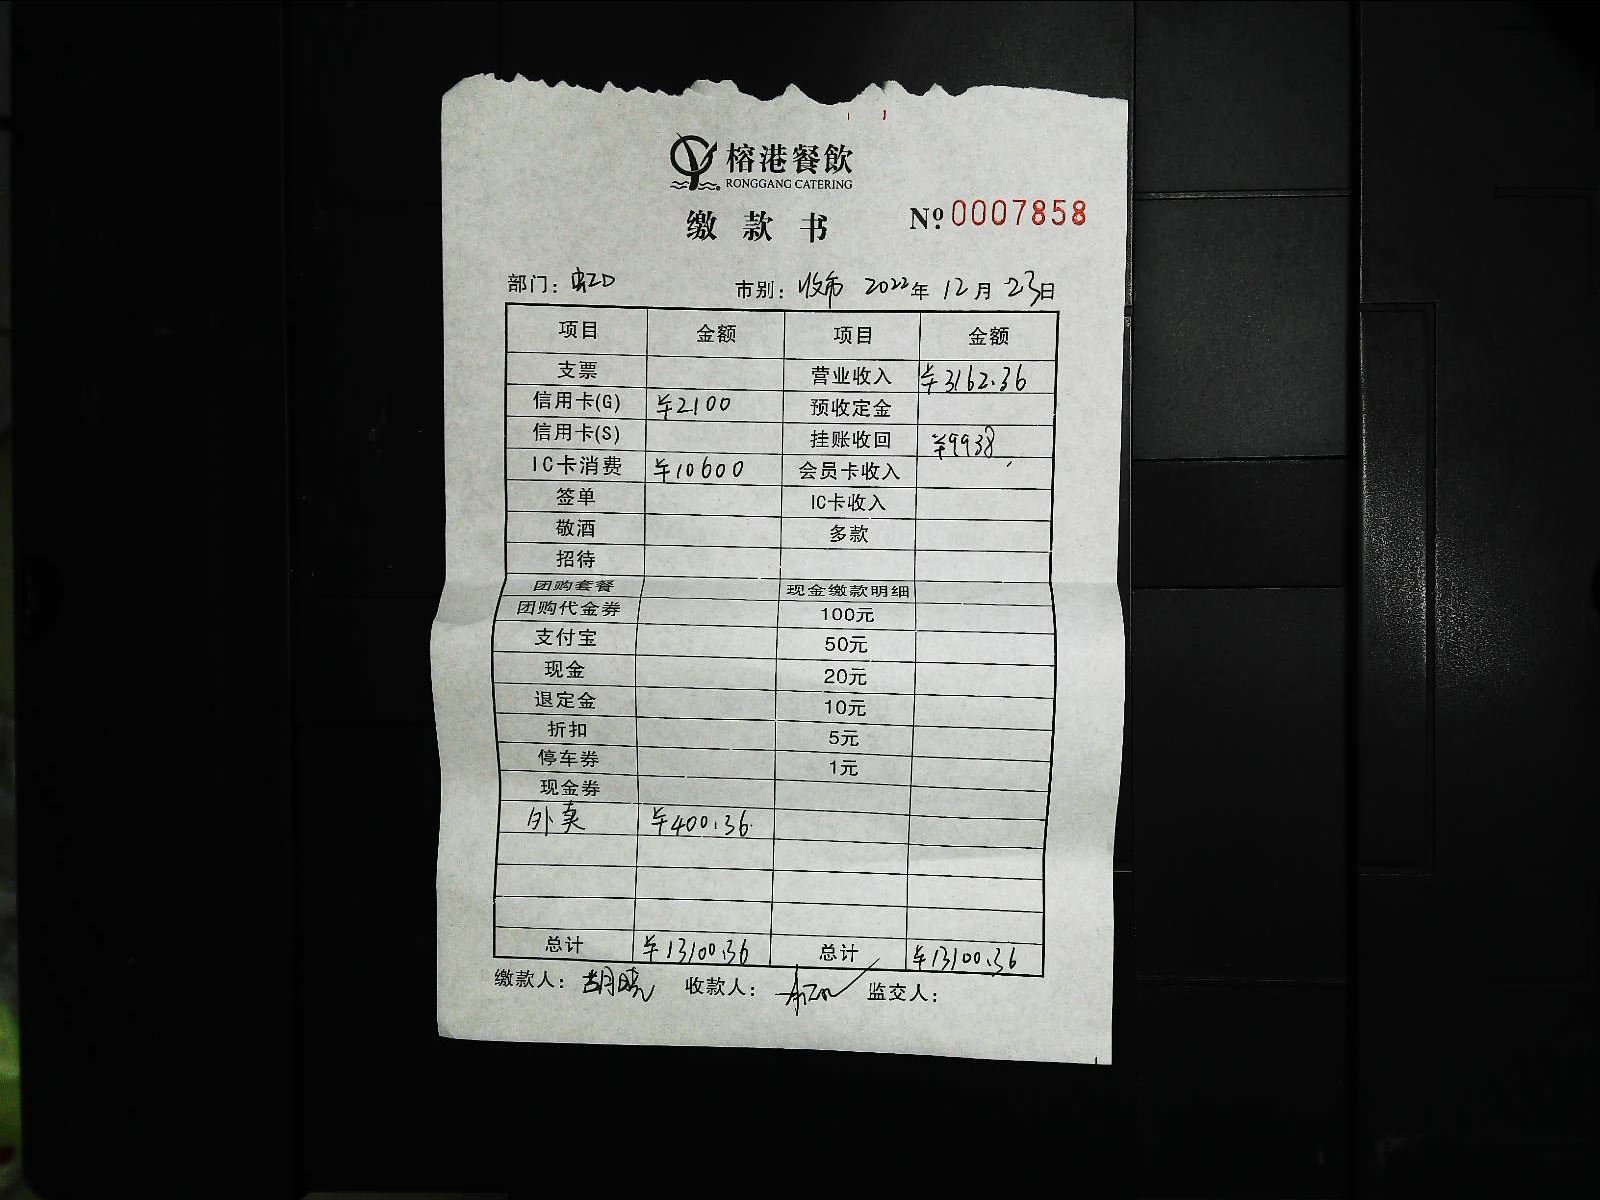 榕港餐飲
RONGGANG CATERING
缴款书 Nº 0007858
部门: 市别: 收市 2022年 12月 23日
项目 金额 项目 金额
支票 营业收入 ¥3162.36
信用卡(G) ¥2100 预收定金
信用卡(S) 挂账收回 ¥9938
IC卡消费 ¥10600 会员卡收入
签单 IC卡收入
敬酒 多款
招待
团购套餐 现金缴款明细
团购代金券 100元
支付宝 50元
现金 20元
退定金 10元
折扣 5元
停车券 1元
现金券
外卖 ¥400.36
总计 ¥13100.36 总计 ¥13100.36
缴款人: 胡晓 收款人: 监交人: